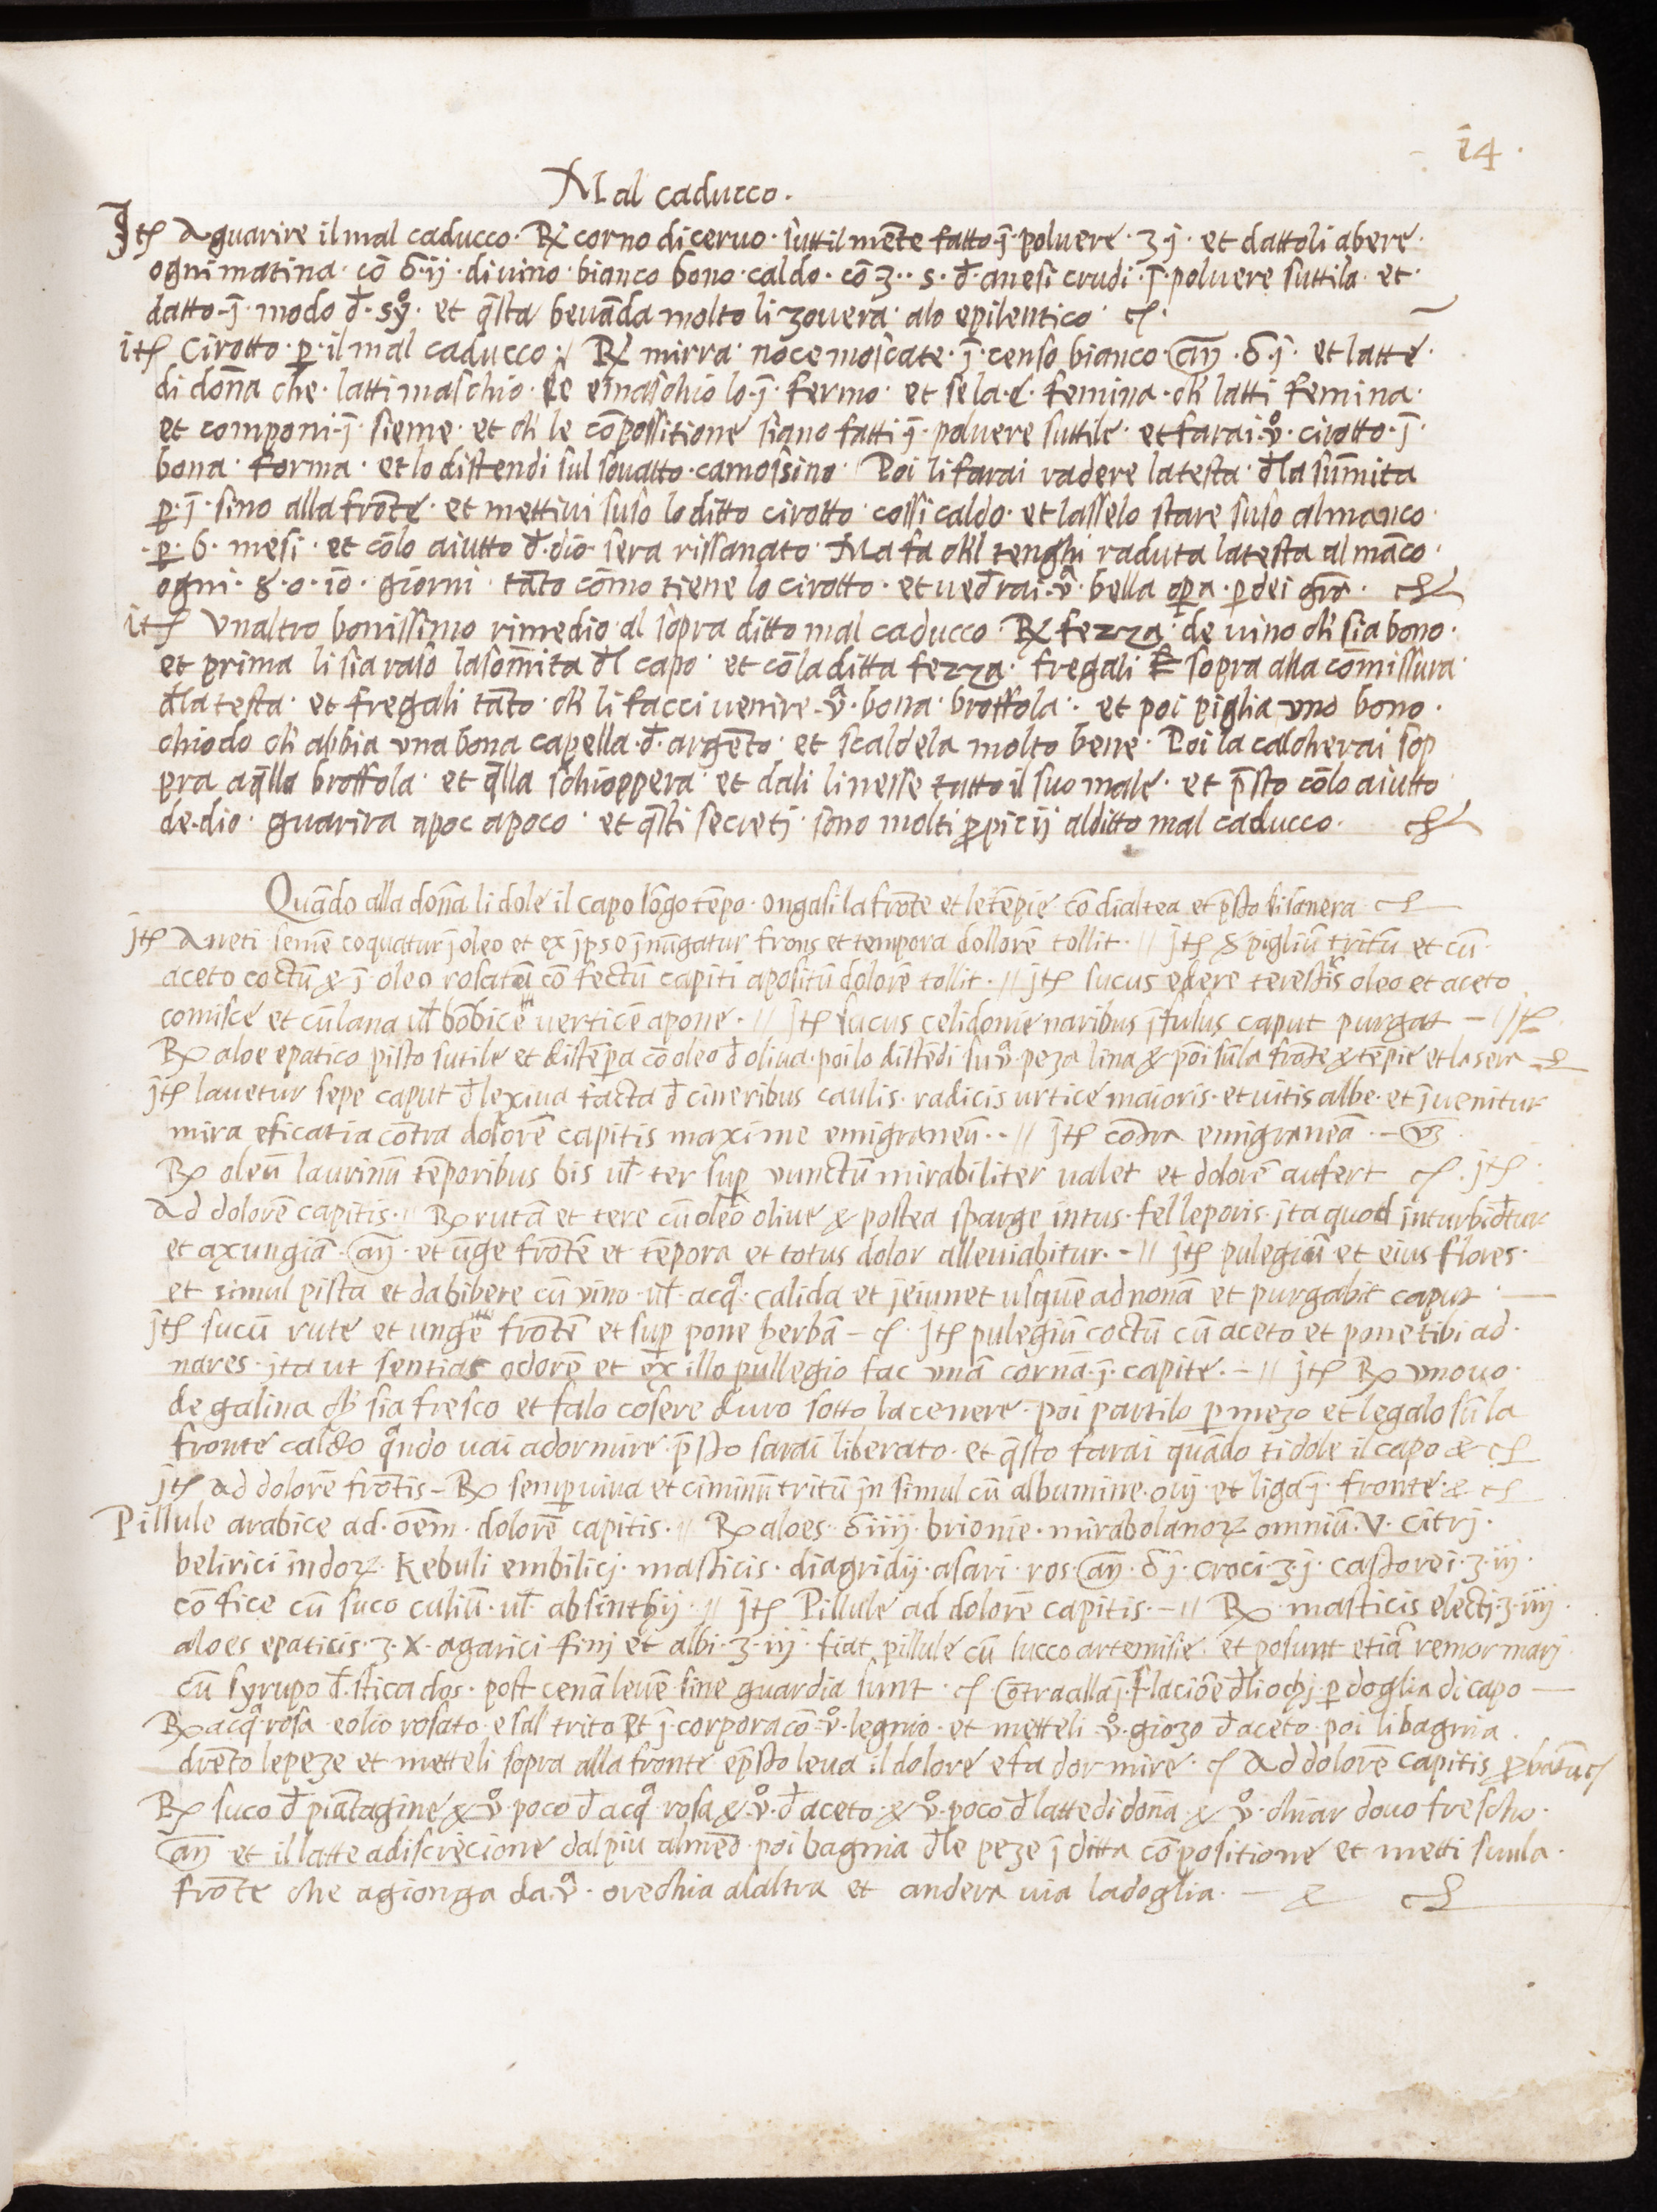 i4.
Mal caducco.
Jtꝭ Aguarire il mal caducco. ℞ corno di ceruo. suttilmẽte fatto. j̃. poluere. ʒ j. et dattoli abere.
ogni matina. cõ ʊ̃. ij. di uino bianco bono caldo. cõ ʒ.. s. đ anesi crudi. j̃. poluere suttila et.
datto. j̃. modo đ. syº. et q̃sta beuãda molto li zouera alo epilentico.
itꝭ Cirotto ꝑ il mal caducco. ℞ mirra noce moscate. j̃. censo bianco. añ. ʊ̃. j. et latte.
di doña che latti maschio se e maschio lo. j̃. fermo. et se la. è. femina. ch̃ latti femina.
et componi j̃ sieme et ch̃ le cõpossitione siano fatti j̃ poluere suttile. et farai. vº. cirotto. j̃.
bona forma. et lo distendi sul souatto camossino. Poi li farai radere la testa. đla sum̃ita
ꝑ. j̃. sino alla frõte. et mettiui suso lo ditto cirotto cossi caldo. et lasselo stare suso almanco.
ꝑ. 6. mesi. et cõlo aiutto đ. dio sera rissanato. Ma fa ch̃l tenghi raduta la testa al mãco.
ogni. 8. o. io. giorni tãto cõmo tiene lo cirotto. et ueđrai. vª. bella oꝑa. ꝑ dei grã.
itꝭ Vnaltro bonissimo rimedio al sopra ditto mal caducco. ℞ fezza de uino ch̃ sia bono.
et prima li sia raso la som̃ita đl capo. et cõla ditta fezza. fregali sopra alla com̃issura
đla testa. et fregali tãto ch̃ li facci uenire. vª. bona broffola. et poi piglia vno bono.
chiodo ch̃ abbia vna bona capella. đ. argẽto. et scaldela molto bene. Poi la calcherai sop
pra aq̃lla broffola. et q̃lla schioppera. et dali li nesse tutto il suo male. et p̃sto cõlo aiutto
de. dio. guarira apoc apoco. et q̃sti secretj sono molti ꝓpicij alditto mal caducco.
Quãdo alla dõna li dole il capo lõgo tẽpo. ongali la frõte et le tẽpie cõ dialtea et p̃sto li sanera
jtꝭ Aneti semẽ coquatur j̃ oleo et ex jpso jnũgatur frons et tempora dollorẽ tollit. // jtꝭ spigliũ tritũ et cũ.
aceto coctũ & j̃ oleo rosatũ cõfectũ capiti apositũ dolorẽ tollit. // jtꝭ sucus edere terestris oleo et aceto
comisce et cũ lana ul̃ bõbice uerticẽ apone. // jtꝭ sucus celidonie naribus j̃fusus caput purgat – // jtꝭ
℞ aloe epatico pisto sutile et distẽpa cõ oleo đ oliua. poi lo distẽdi su vª. peza lina & põi sula frõte & tẽpie et la sera
jtꝭ lauetur sepe caput đ lexiua facta đ cineribus caulis. radicis urtice maioris. et uitis albe. et j̃uenitur
mira eficatia cõtra dolorẽ capitis maxime emigraneũ.. // jtꝭ cõtra emigraneã.
℞ oleũ laurinũ tẽporibus bis ul̃ ter suꝑ vunctũ mirabiliter ualet et dolorẽ aufert. jtꝭ.
Ad dolorẽ capitis. // ℞ rutã et tere cũ oleo oliue & postea sparge intus. fel leporis. jta quod inturbiđtur
et axungiã. añ. et ũge frõtẽ et tẽpora et totus dolor alleuiabitur. – // jtꝭ pulegiũ et eius flores.
et simul pista et da bibere cũ vino. ul̃ acqª. calida et jeiunet usque ad nonã et purgabit caput. —
jtꝭ sucũ rute et unge frõtẽ et suꝑ pone herbã – jtꝭ pulegiũ coctũ cũ aceto et pone tibi ad.
nares. jta ut sentias odorẽ et ex illo pullegio fac vnã cornã. j̃. capite. – // jtꝭ ℞ vnouo.
de galina ch̃ sia fresco et falo cosere duro sotto la cenere. poi partilo ꝑ mezo et legalo sũla
fronte caldo qªndo uai adormire. p̃sto sarai liberato. et q̃sto farai quãdo ti dole il capo &
jtꝭ ad dolorẽ frõtis – ℞ semꝑuiua et ciminũ tritũ jn simul cũ albumine. ouj. et liga j̃. fronte. &
Pillule arabice ad. oẽm. dolorẽ capitis. // ℞ aloes. ʊ̃ iiij. brionie. mirabolanoꝝ omniũ. v. citrj.
belirici indoꝝ. Kebuli embilicj. masticis. diagridij. asari. ros. añ. ʊ̃ j. croci. ʒ. j. castorei. ʒ. iij.
cõfice cũ suco culiũ. ul̃ absinthij. // jtꝭ Pillule ad dolorẽ capitis. – // ℞ masticis electj. ʒ. iiij.
aloes epaticis. ʒ. x. agarici finj et albi. ʒ. iij. fiat pillule cũ succo artemisie. et posunt etiã remormarj
cũ syrupo đ. sticados. post cenã leuẽ sine guardia sunt. Cõtra alla j̃flaciõe đli ochj. ꝑ doglia di capo —
℞ acqª rosa e olio rosato e sal trito et j̃corpora cõ vº. legnio. et metteli vº. giozo đ aceto. poi li bagnia.
drẽto le peze et metteli sopra alla frontẽ e p̃sto leua il dolore e fa dormire. Ad dolorẽ capitis ꝓbatũ
℞ suco đ piãtagine & vº poco đ acqª rosa & vº. đ aceto. & vº. poco đ latte di doña. & vº. chiar douo frescho.
añ et il latte adiscrecione dal piu almẽo. poi bagnia đle peze j̃ ditta cõpositione et metti suula.
frõte che agionga da vª. orechia alaltra et andera uia la doglia. — &